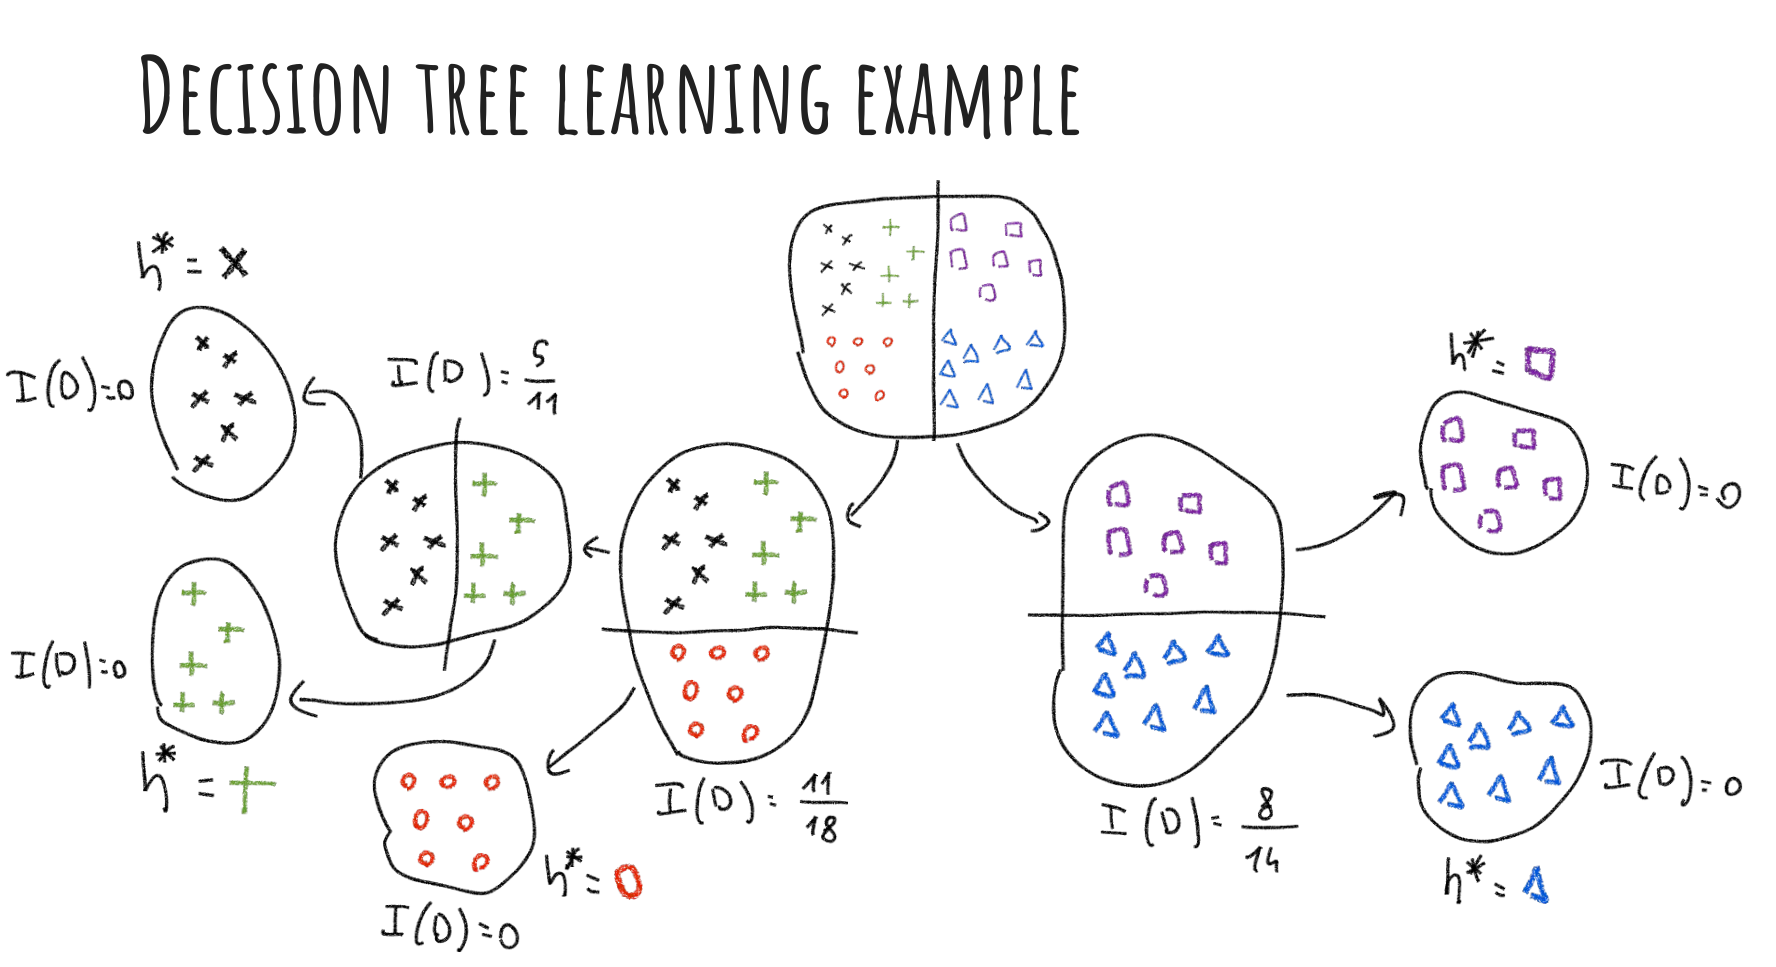 DECISION TREE LEARNING EXAMPLE
h* = ×
I(D)=0
I(D)= 5/11
I(D)=0
h* = +
I(D)=0
h* = O
I(D)= 11/18
I(D)= 8/14
h* = □
I(D)=0
I(D)=0
h* = Δ